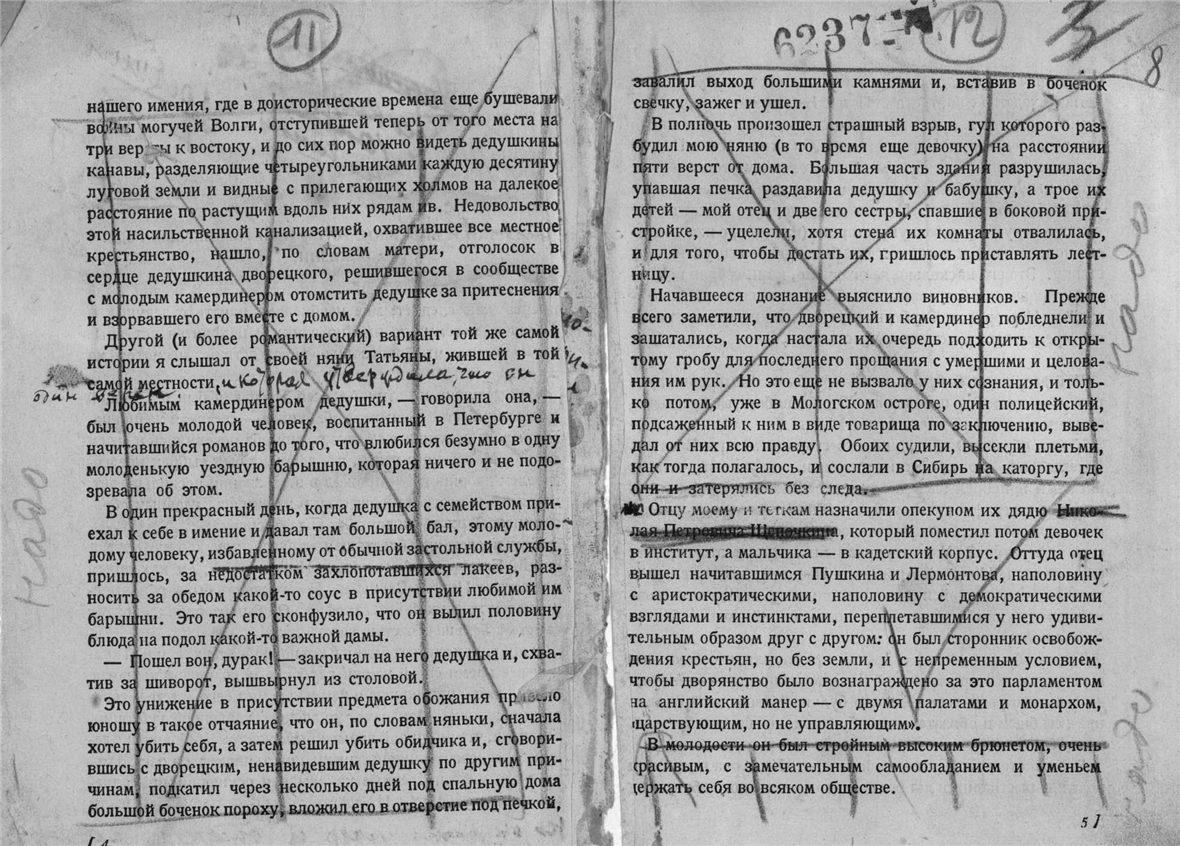 11
нашего имения, где в доисторические времена еще бушевали
волны могучей Волги, отступившей теперь от того места на
три версты к востоку, и до сих пор можно видеть дедушкины
канавы, разделяющие четыреугольниками каждую десятину
луговой земли и видные с прилегающих холмов на далекое
расстояние по растущим вдоль них рядам ив. Недовольство
этой насильственной канализацией, охватившее все местное
крестьянство, нашло, по словам матери, отголосок в
сердце дедушкина дворецкого, решившегося в сообществе
с молодым камердинером отомстить дедушке за притеснения
и взорвавшего его вместе с домом.
Другой (и более романтический) вариант той же самой
истории я слышал от своей няни Татьяны, жившей в той
самой местности, и которая утверждала, что он
Любимым камердинером дедушки, — говорила она, —
был очень молодой человек, воспитанный в Петербурге и
начитавшийся романов до того, что влюбился безумно в одну
молоденькую уездную барышню, которая ничего и не подо-
зревала об этом.
В один прекрасный день, когда дедушка с семейством при-
ехал к себе в имение и давал там большой бал, этому моло-
дому человеку, избавленному от обычной застольной службы,
пришлось, за недостатком захлопотавшихся лакеев, раз-
носить за обедом какой-то соус в присутствии любимой им
барышни. Это так его сконфузило, что он вылил половину
блюда на подол какой-то важной дамы.
— Пошел вон, дурак! — закричал на него дедушка и, схва-
тив за шиворот, вышвырнул из столовой.
Это унижение в присутствии предмета обожания привело
юношу в такое отчаяние, что он, по словам няньки, сначала
хотел убить себя, а затем решил убить обидчика и, сговори-
вшись с дворецким, ненавидевшим дедушку по другим при-
чинам, подкатил через несколько дней под спальную дома
большой боченок пороху, вложил его в отверстие под печкой,
[ 4
надо
6237
12
8
завалил выход большими камнями и, вставив в боченок
свечку, зажег и ушел.
В полночь произошел страшный взрыв, гул которого раз-
будил мою няню (в то время еще девочку) на расстоянии
пяти верст от дома. Большая часть здания разрушилась,
упавшая печка раздавила дедушку и бабушку, а трое их
детей — мой отец и две его сестры, спавшие в боковой при-
стройке, — уцелели, хотя стена их комнаты отвалилась,
и для того, чтобы достать их, пришлось приставлять лест-
ницу.
Начавшееся дознание выяснило виновников. Прежде
всего заметили, что дворецкий и камердинер побледнели и
зашатались, когда настала их очередь подходить к откры-
тому гробу для последнего прощания с умершими и целова-
ния им рук. Но это еще не вызвало у них сознания, и толь-
ко потом, уже в Мологском остроге, один полицейский,
подсаженный к ним в виде товарища по заключению, выве-
дал от них всю правду. Обоих судили, высекли плетьми,
как тогда полагалось, и сослали в Сибирь на каторгу, где
они и затерялись без следа.
Отцу моему и теткам назначили опекуном их дядю Нико-
лая Петровича Щепочкина, который поместил потом девочек
в институт, а мальчика — в кадетский корпус. Оттуда отец
вышел начитавшимся Пушкина и Лермонтова, наполовину
с аристократическими, наполовину с демократическими
взглядами и инстинктами, переплетавшимися у него удиви-
тельным образом друг с другом: он был сторонник освобож-
дения крестьян, но без земли, и с непременным условием,
чтобы дворянство было вознаграждено за это парламентом
на английский манер — с двумя палатами и монархом,
царствующим, но не управляющим».
В молодости он был стройным высоким брюнетом, очень
красивым, с замечательным самообладанием и уменьем
держать себя во всяком обществе.
5 ]
надо
надо